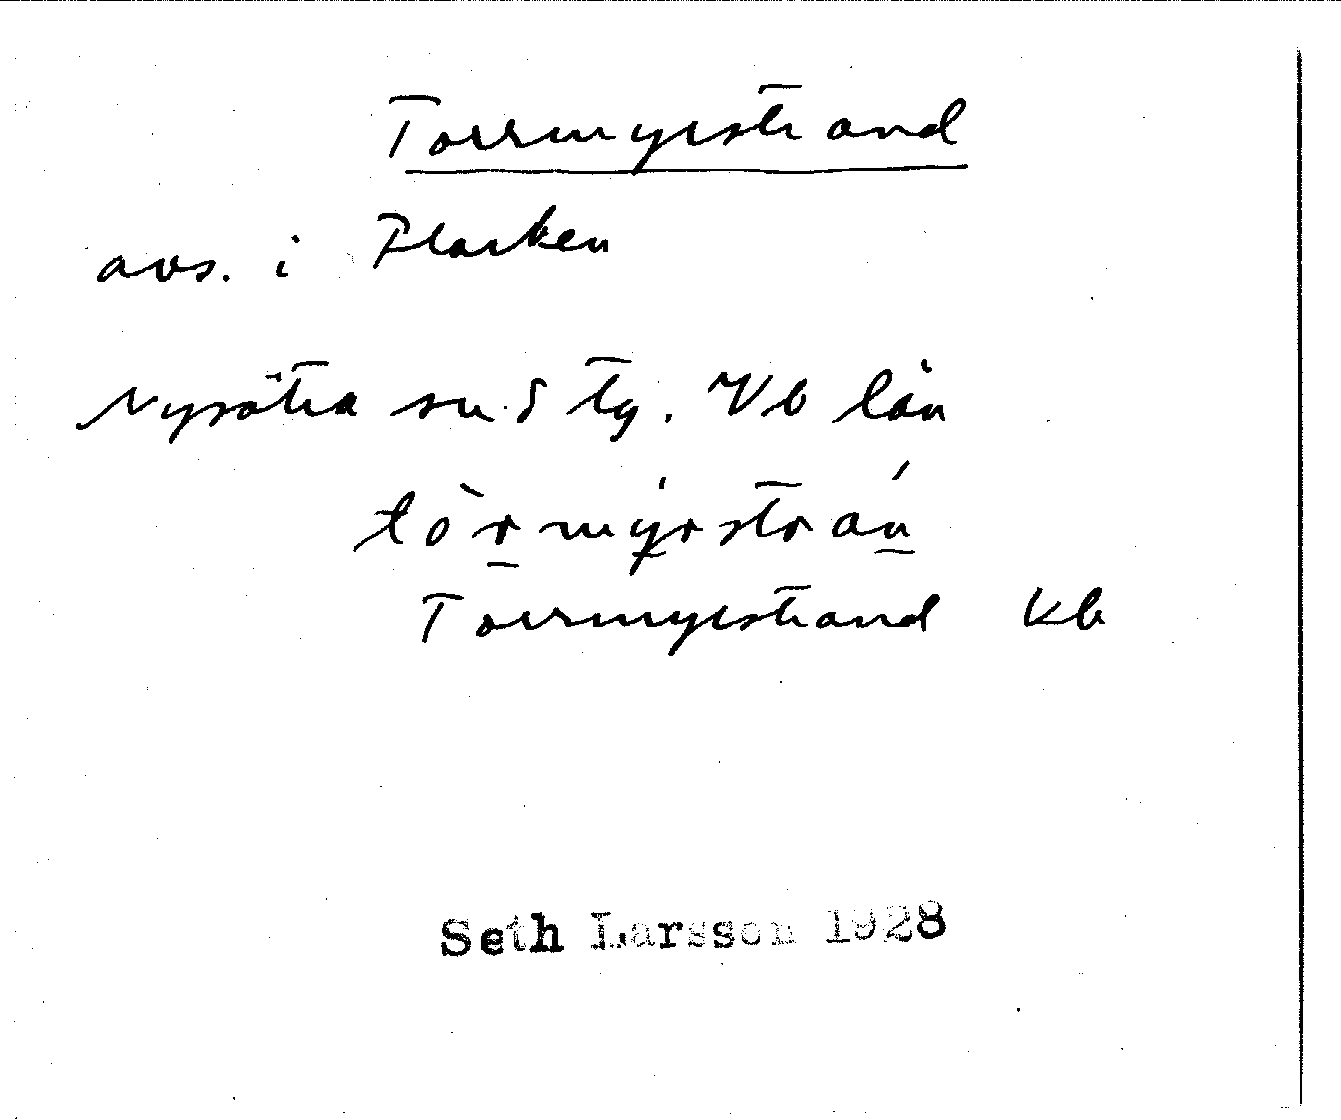 Torrmyrstrand
avs. i Flarken
Nysätra sn. S tg. Vb län
tòrmyrstrán
Torrmyrstrand kb
Seth Larsson 1928